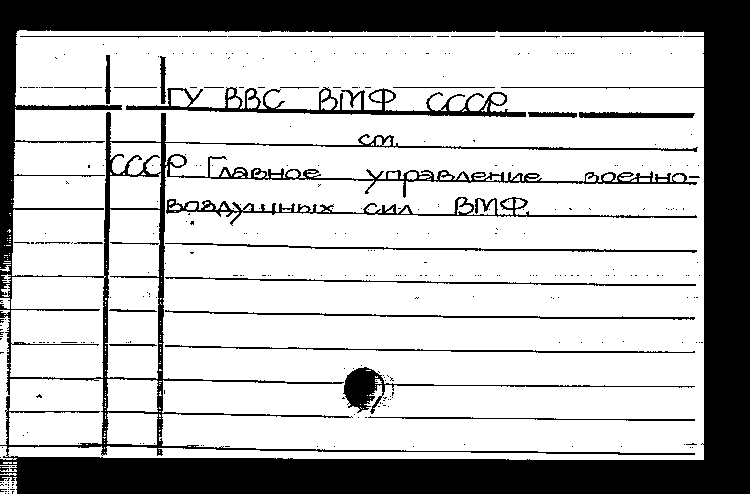 ГУ ВВС ВМФ СССР
см.
СССР Главное управление военно-
воздушных сил ВМФ.